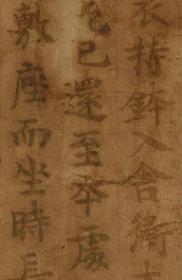 衣持鉢入舍衛大
乞已還至夲處
敷座而坐時長